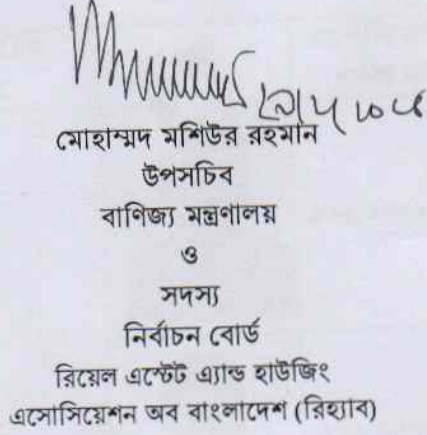 মোহাম্মদ মশিউর রহমান
উপসচিব
বাণিজ্য মন্ত্রণালয়
ও
সদস্য
নির্বাচন বোর্ড
রিয়েল এস্টেট এ্যান্ড হাউজিং
এসোসিয়েশন অব বাংলাদেশ (রিহ্যাব)